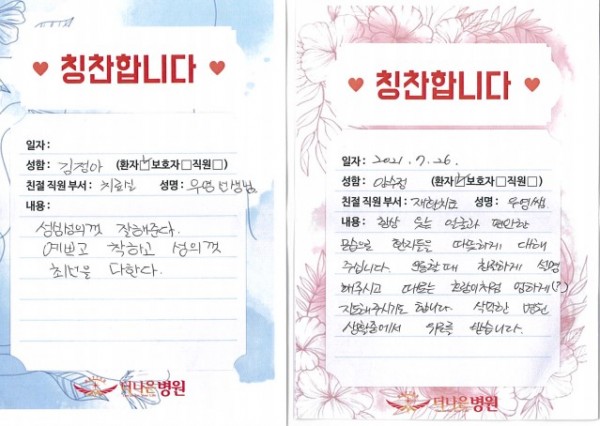 칭찬합니다
일자 :
성함 : 김정아 (환자☑보호자□직원□)
친절 직원 부서 : 치료실 성명 : 우영선생님
내용 :
성심성의껏 잘해준다.
예쁘고 착하고 성의껏
최선을 다한다.
더나은병원
칭찬합니다
일자 : 2021. 7. 26.
성함 : 임수정 (환자☑보호자□직원□)
친절 직원 부서 : 재활치료 성명 : 우영쌤
내용 : 항상 웃는 얼굴과 편안한
모습으로 환자들을 따뜻하게 대해
주십니다. 운동할때 친절하게 설명
해주시고 때로는 호랑이처럼 엄하게(?)
지도해주시기도 합니다. 삭막한 병원
생활중에서 위로를 받습니다.
더나은병원